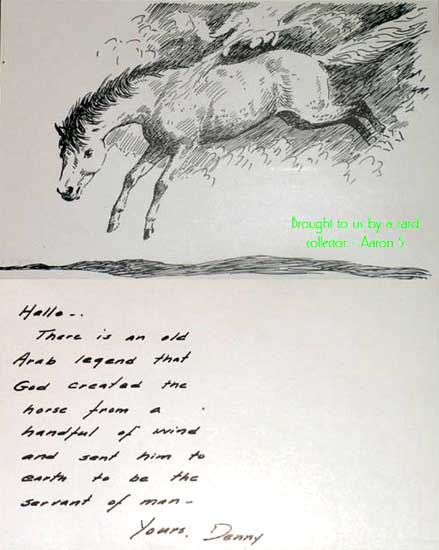 Brought to us by a card
collector - Aaron S.
Hello--
There is an old
Arab legend that
God created the
horse from a
handful of wind
and sent him to
earth to be the
servant of man-
Yours, Denny